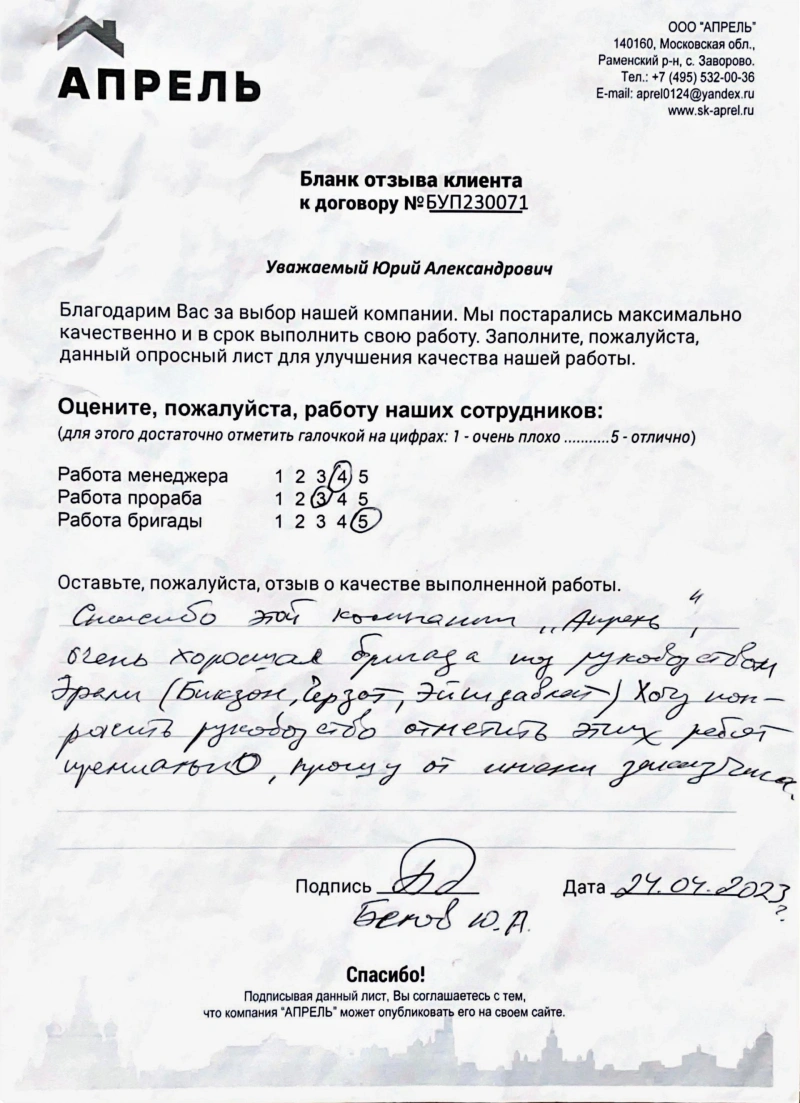 АПРЕЛЬ
ООО "АПРЕЛЬ"
140160, Московская обл.,
Раменский р-н, с. Заворово.
Тел.: +7 (495) 532-00-36
E-mail: aprel0124@yandex.ru
www.sk-aprel.ru
Бланк отзыва клиента
к договору №БУП230071
Уважаемый Юрий Александрович
Благодарим Вас за выбор нашей компании. Мы постарались максимально
качественно и в срок выполнить свою работу. Заполните, пожалуйста,
данный опросный лист для улучшения качества нашей работы.
Оцените, пожалуйста, работу наших сотрудников:
(для этого достаточно отметить галочкой на цифрах: 1 - очень плохо ...........5 - отлично)
Работа менеджера 1 2 3 4 5
Работа прораба 1 2 3 4 5
Работа бригады 1 2 3 4 5
Оставьте, пожалуйста, отзыв о качестве выполненной работы.
Спасибо этой компании „Апрель",
очень хорошая бригада под руководством
Эрали (Бикзон, Эйшдавлат) Хочу поп-
росить руководство отметить этих ребят
, прошу от имени заказчика.
Подпись
Дата 24.04.2023 г.
Ю.А.
Спасибо!
Подписывая данный лист, Вы соглашаетесь с тем,
что компания "АПРЕЛЬ" может опубликовать его на своем сайте.